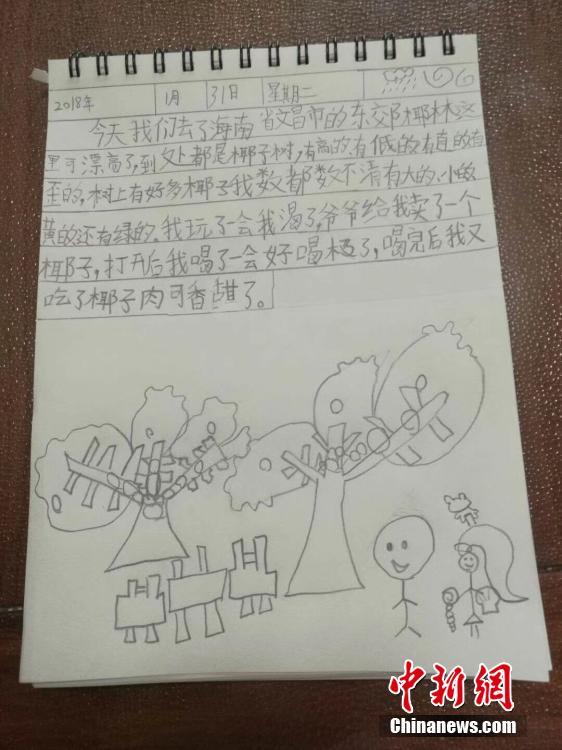 2018年 1月 31日 星期二
今天我们去了海南省文昌市的东交椰林这
里可漂亮了,到处都是椰子树,有高的有低的有直的有
歪的,树上有好多椰子我数都数不清有大的.小的
黄的还有绿的.我玩了一会我渴了,爷爷给我卖了一个
椰子,打开后我喝了一会好喝极了,喝完后我又
吃了椰子肉可香甜了。
中新网
Chinanews.com